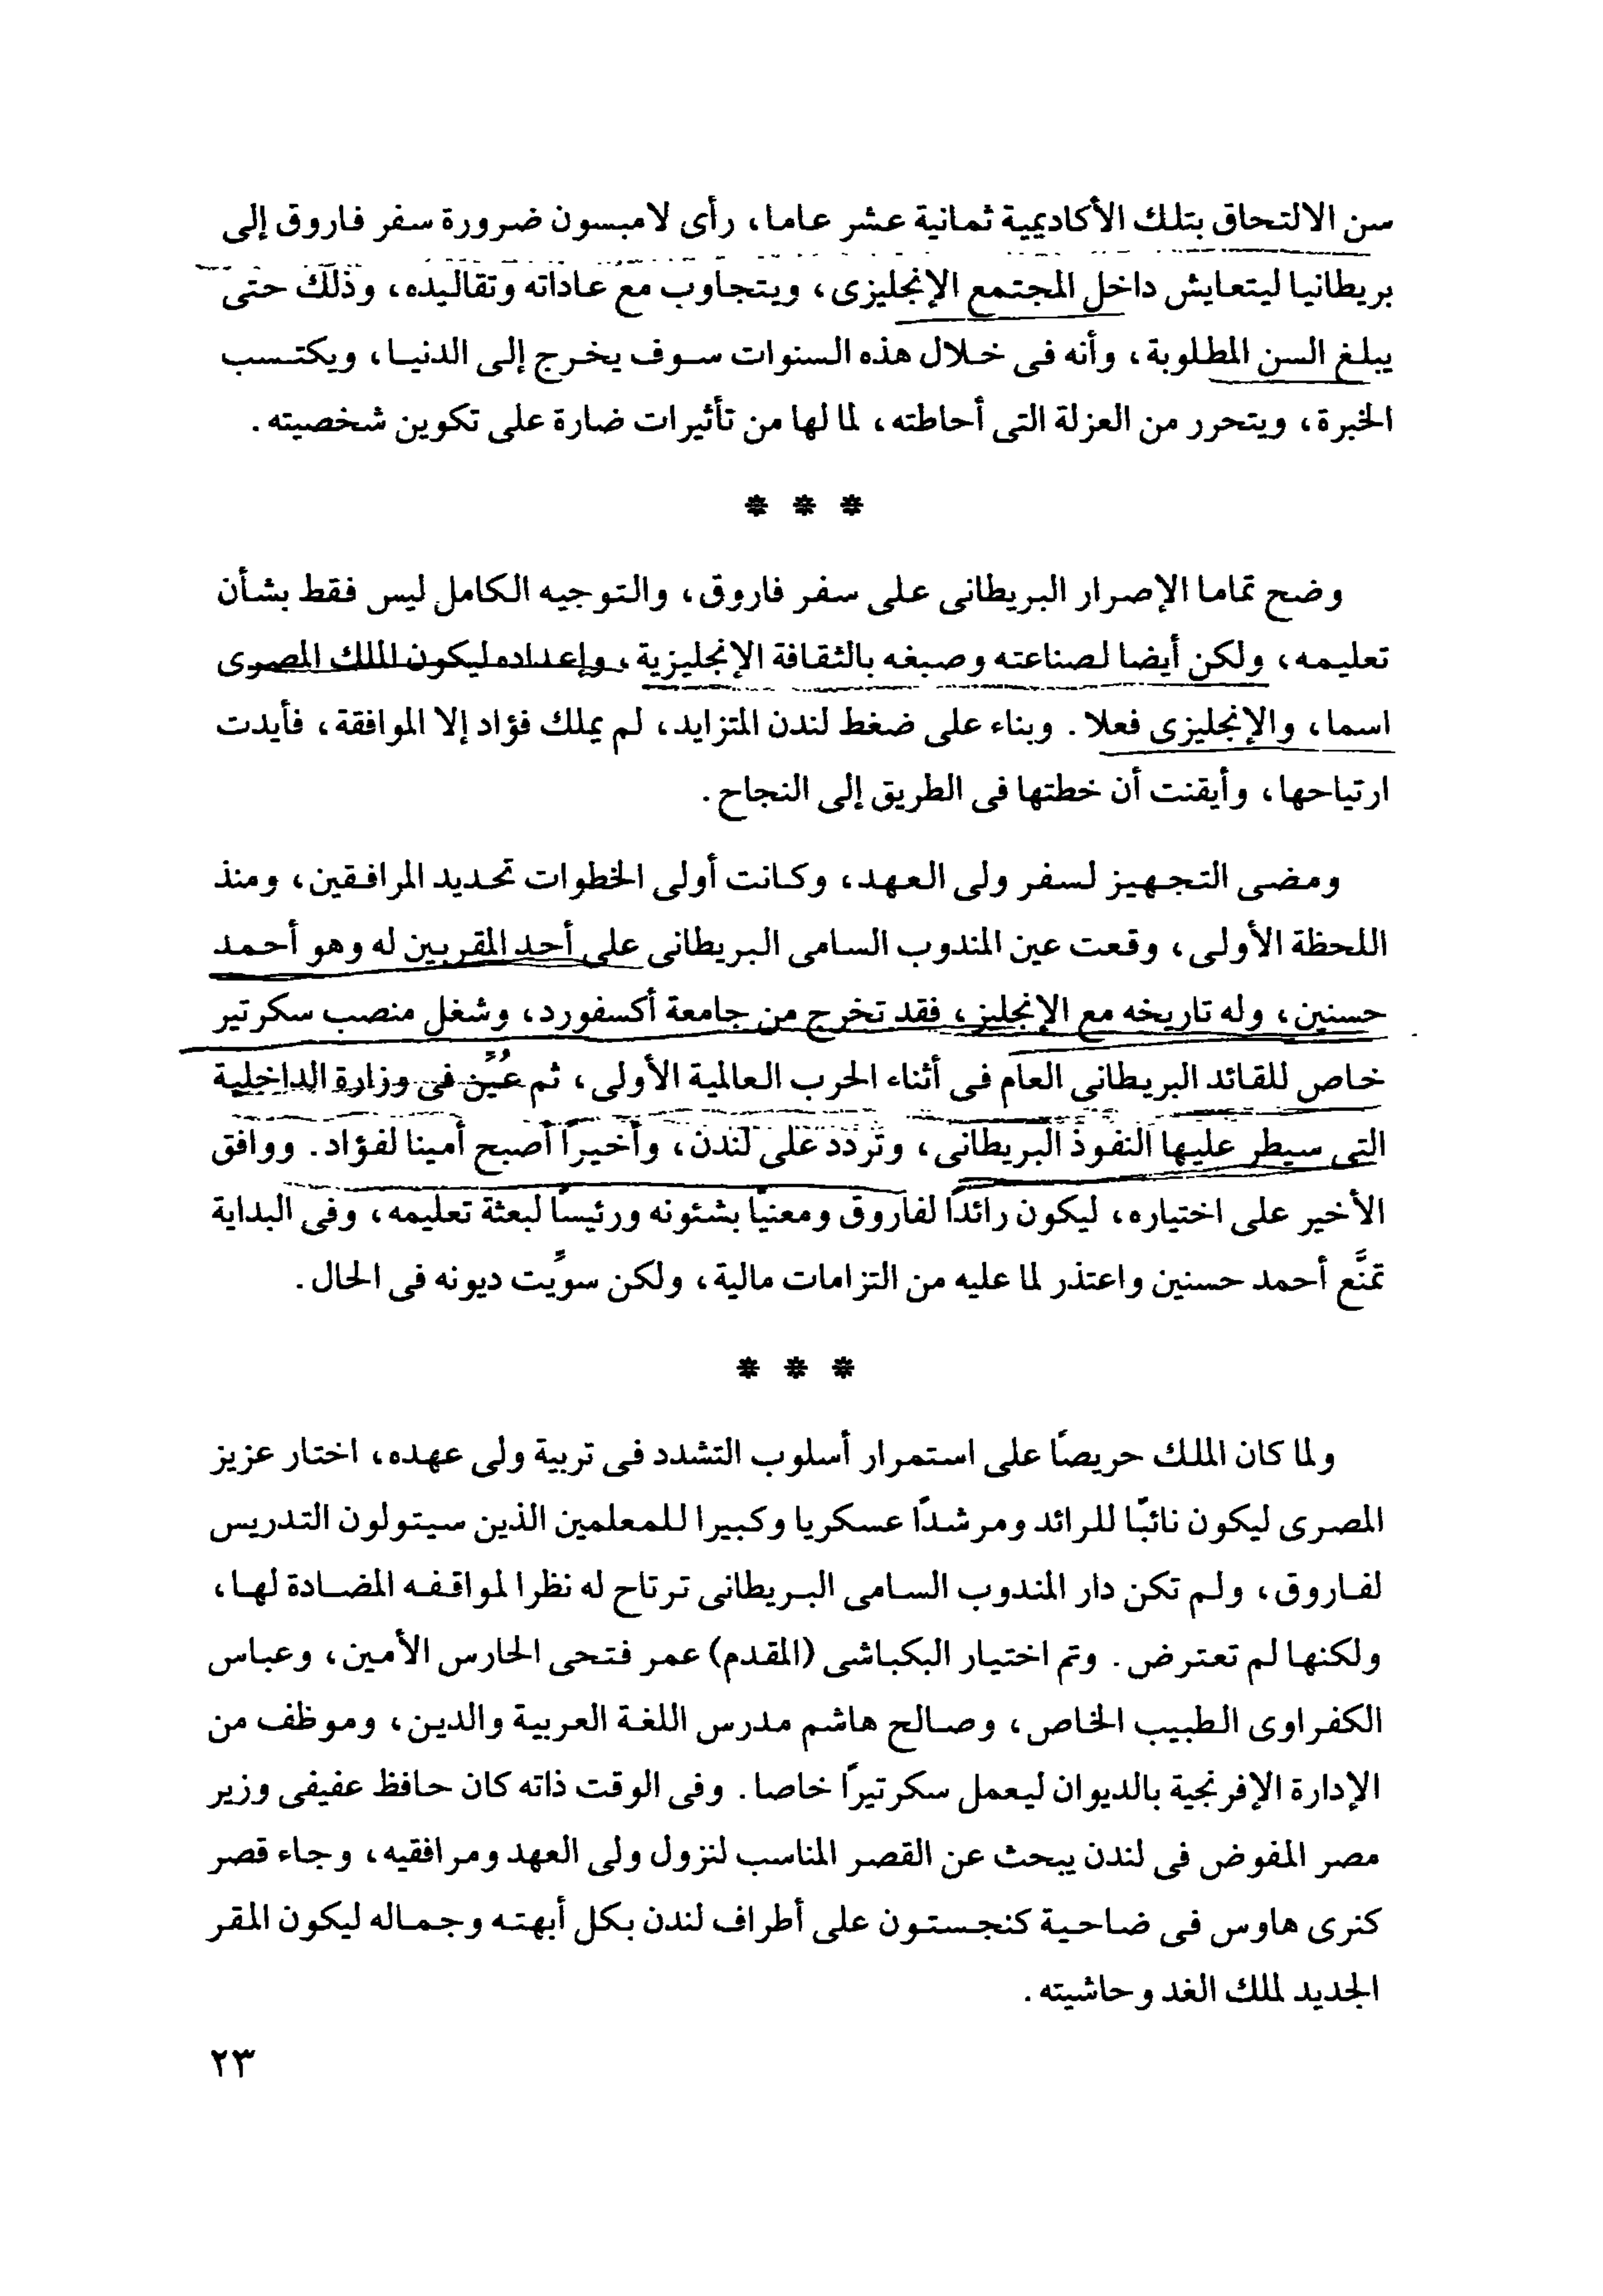 سن الالتحاق بتلك الأكاديمية ثمانية عشر عاما، رأى لامبسون ضرورة سفر فاروق إلى
بريطانيا ليتعايش داخل المجتمع الإنجليزى، ويتجاوب مع عاداته وتقاليده، وذلك حتى
يبلغ السن المطلوبة، وأنه فى خلال هذه السنوات سوف يخرج إلى الدنيا، ويكتسب
الخبرة، ويتحرر من العزلة التى أحاطته، لما لها من تأثيرات ضارة على تكوين شخصيته.
* * *
وضح تماما الإصرار البريطانى على سفر فاروق، والتوجيه الكامل ليس فقط بشأن
تعليمه، ولكن أيضا لصناعته وصبغه بالثقافة الإنجليزية، وإعداده ليكون الملك المصرى
اسما، والإنجليزى فعلا. وبناء على ضغط لندن المتزايد، لم يملك فؤاد إلا الموافقة، فأيدت
ارتياحها، وأيقنت أن خطتها فى الطريق إلى النجاح.
ومضى التجهيز لسفر ولى العهد، وكانت أولى الخطوات تحديد المرافقين، ومنذ
اللحظة الأولى، وقعت عين المندوب السامى البريطانى على أحد المقربين له وهو أحمد
حسنين، وله تاريخه مع الإنجليز، فقد تخرج من جامعة أكسفورد، وشغل منصب سكرتير
خاص للقائد البريطانى العام فى أثناء الحرب العالمية الأولى، ثم عُيِّن فى وزارة الداخلية
التى سيطر عليها النفوذ البريطانى، وتردد على لندن، وأخيرًا أصبح أمينا لفؤاد. ووافق
الأخير على اختياره، ليكون رائدًا لفاروق ومعنيًا بشئونه ورئيسًا لبعثة تعليمه، وفى البداية
تمنَّع أحمد حسنين واعتذر لما عليه من التزامات مالية، ولكن سوِّيت ديونه فى الحال.
* * *
ولما كان الملك حريصًا على استمرار أسلوب التشدد فى تربية ولى عهده، اختار عزيز
المصرى ليكون نائبًا للرائد ومرشدًا عسكريا وكبيرا للمعلمين الذين سيتولون التدريس
لفاروق، ولم تكن دار المندوب السامى البريطانى ترتاح له نظرا لمواقفه المضادة لها،
ولكنها لم تعترض. وتم اختيار البكباشى (المقدم) عمر فتحى الحارس الأمين، وعباس
الكفراوى الطبيب الخاص، وصالح هاشم مدرس اللغة العربية والدين، وموظف من
الإدارة الإفرنجية بالديوان ليعمل سكرتيرًا خاصا. وفى الوقت ذاته كان حافظ عفيفى وزير
مصر المفوض فى لندن يبحث عن القصر المناسب لنزول ولى العهد ومرافقيه، وجاء قصر
كنرى هاوس فى ضاحية كنجستون على أطراف لندن بكل أبهته وجماله ليكون المقر
الجديد لملك الغد وحاشيته.
٢٣